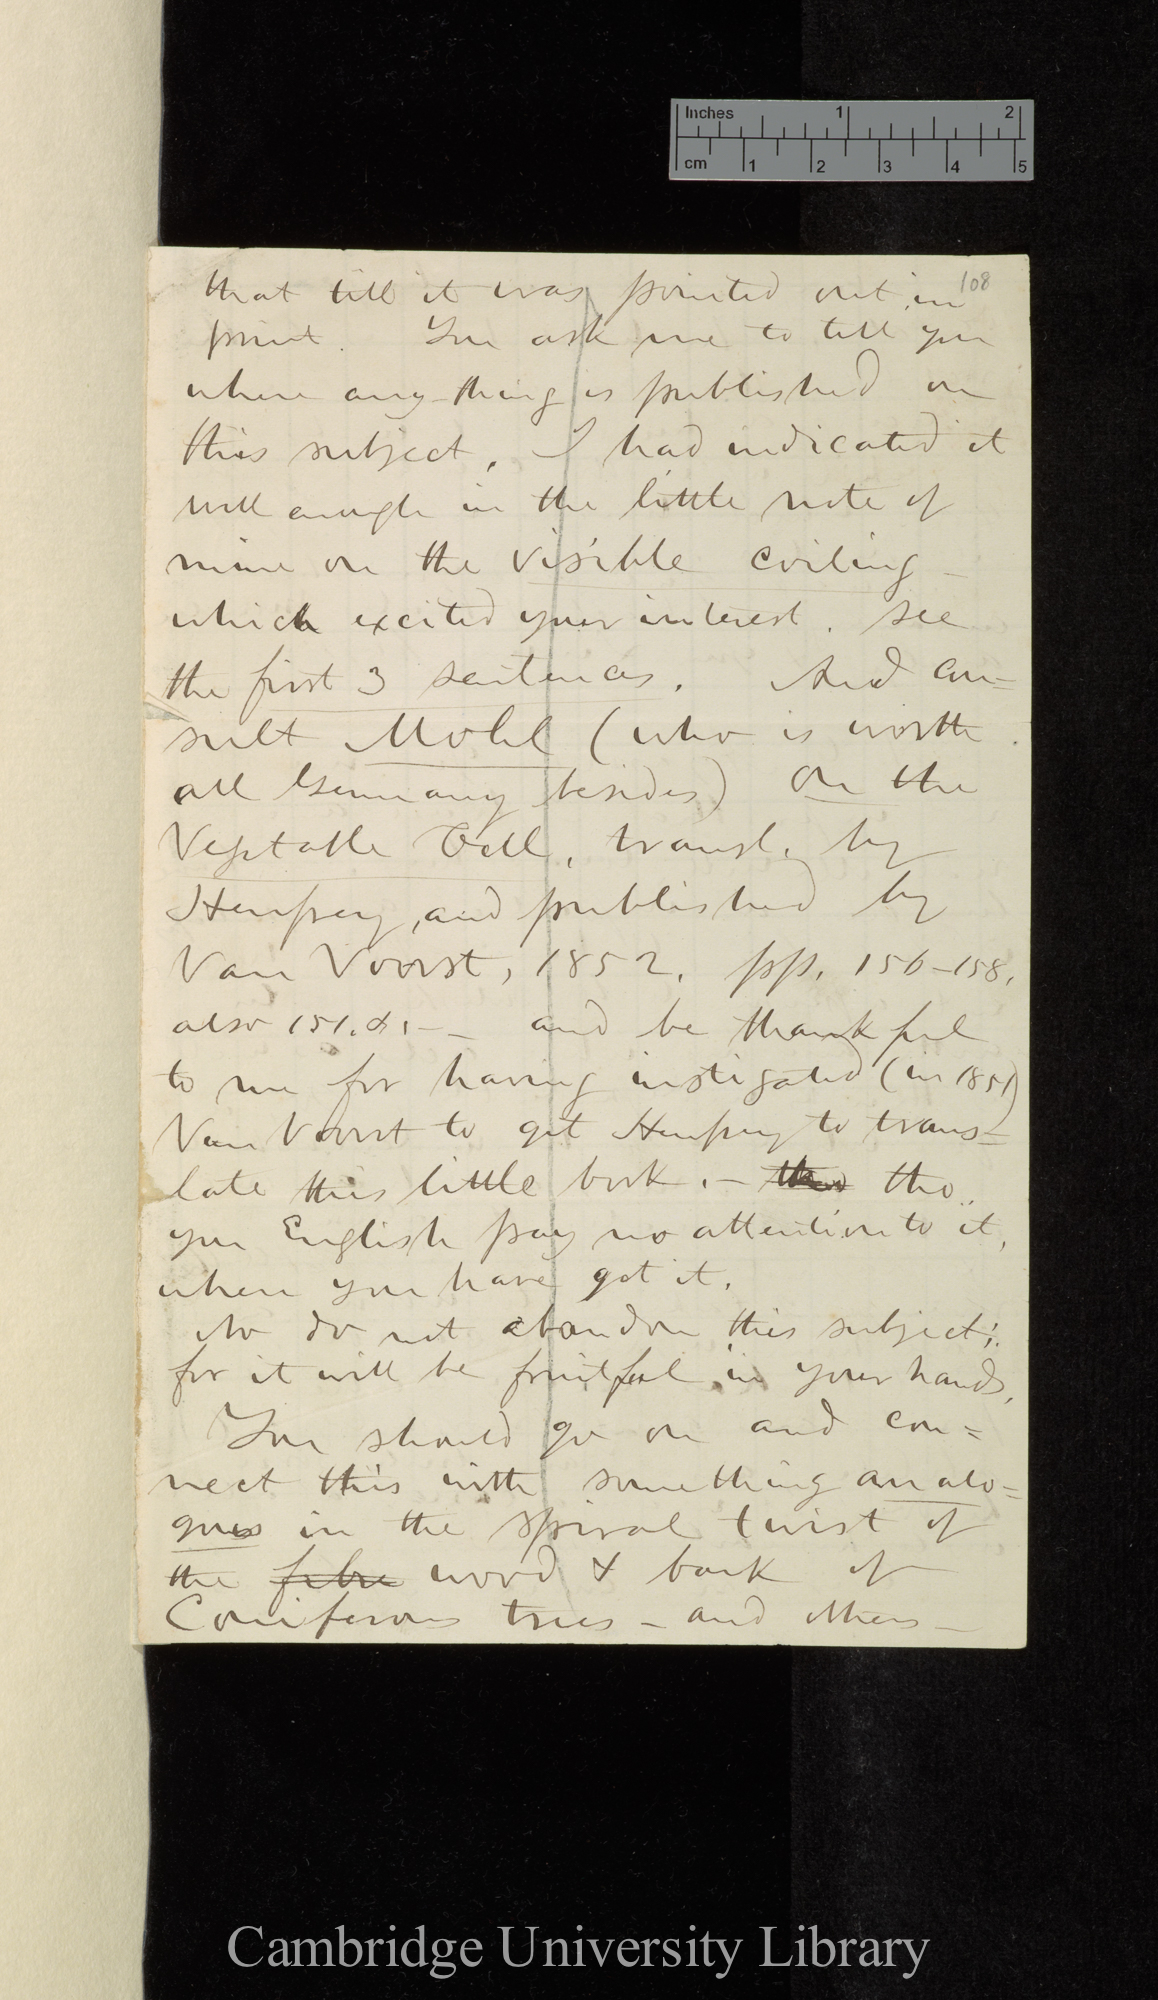 Inches 1 2
cm 1 2 3 4 5
108
that till it was pointed out in
print. You ask me to tell you
where any-thing is published on
this subject, I had indicated it
well enough in the little note of
mine on the visible coiling –
which excited your interest. see
the first 3 sentences. And con=
sult Mohl (who is worth
all Germany besides) On the
Vegetable Cell, transl. by
Henfrey, and published by
Van Voorst, 1852. pp. 156–158.
also 151. &c – and be thankful
to me for having instigated (in 1851)
Van Voorst to get Henfrey to trans=
late this little book. – tho
you English pay no attention to it,
when you have got it.
No do not abandon this subject;
for it will be fruitful in your hands.
You should go on and con=
nect this with something analo=
gous in the spiral twist of
the fibre wood & bark of
Coniferous trees – and others –
Cambridge University Library